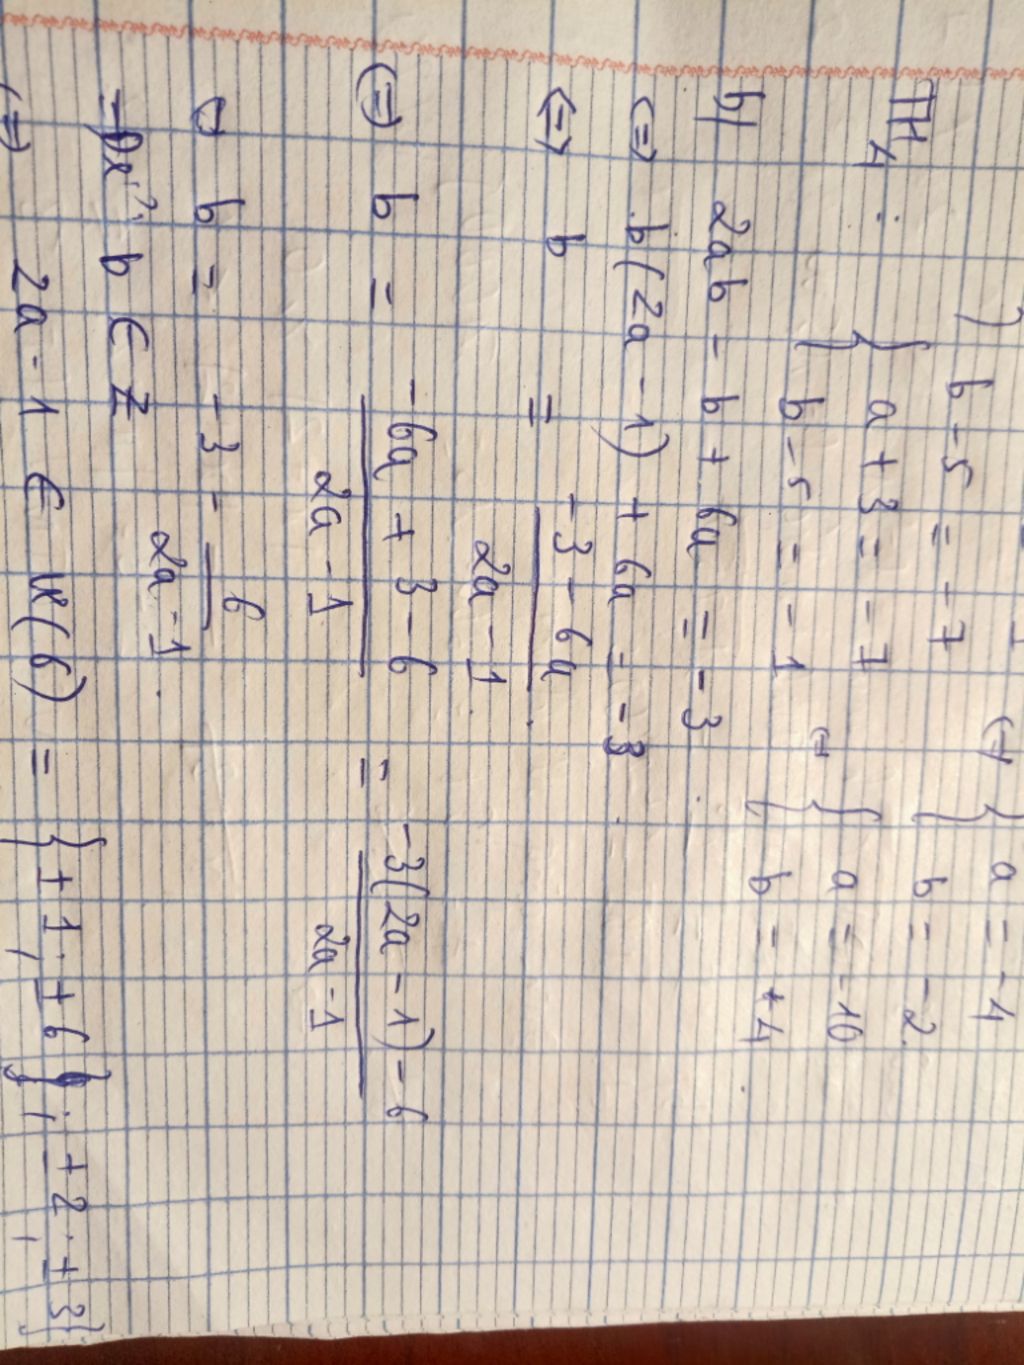 b - 5 = -7 (=) { a = -4
b = -2
TH4 : { a + 3 = -7
b - 5 = -1 (=) { a = -10
b = +4
b) 2ab - b + 6a = -3
(=) b(2a - 1) + 6a = -3
(=) b = -3 - 6a / 2a - 1
(=) b = -6a + 3 - 6 / 2a - 1 = -3(2a - 1) - 6 / 2a - 1
b = -3 - 6 / 2a - 1
b ∈ Z
(=) 2a - 1 ∈ Ư(6) = { ± 1, ± 6 ; ± 2, ± 3}